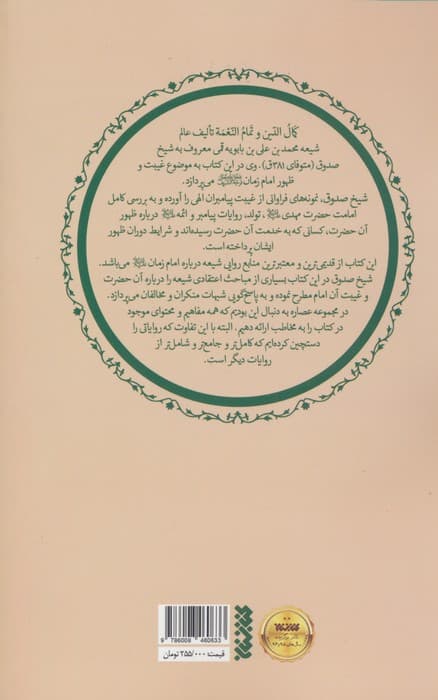 کمالُ الدّین و تمامُ النّعمَة تألیف عالم
شیعه محمد بن علی بن بابویه قمی معروف به شیخ
صدوق (متوفای ۳۸۱ق). وی در این کتاب به موضوع غیبت و
ظهور امام زمان می‌پردازد.
شیخ صدوق، نمونه‌های فراوانی از غیبت پیامبران الهی را آورده و به بررسی کامل
امامت حضرت مهدی ، تولد، روایات پیامبر و ائمه درباره ظهور
آن حضرت، کسانی که به خدمت آن حضرت رسیده‌اند و شرایط دوران ظهور
ایشان پرداخته است.
این کتاب از قدیمی‌ترین و معتبرترین منابع روایی شیعه درباره امام زمان می‌باشد.
شیخ صدوق در این کتاب بسیاری از مباحث اعتقادی شیعه را درباره آن حضرت
و غیبت آن امام مطرح نموده و به پاسخ‌گویی شبهات منکران و مخالفان می‌پردازد.
در مجموعه عصاره به دنبال این بودیم که همه مفاهیم و محتوای موجود
در کتاب را به مخاطب ارائه دهیم . البته با این تفاوت که روایاتی را
دستچین کرده‌ایم که کامل‌تر و جامع‌تر و شامل‌تر از
روایات دیگر است.
9 786009 460633
قیمت: ۲۵۵/۰۰۰ تومان